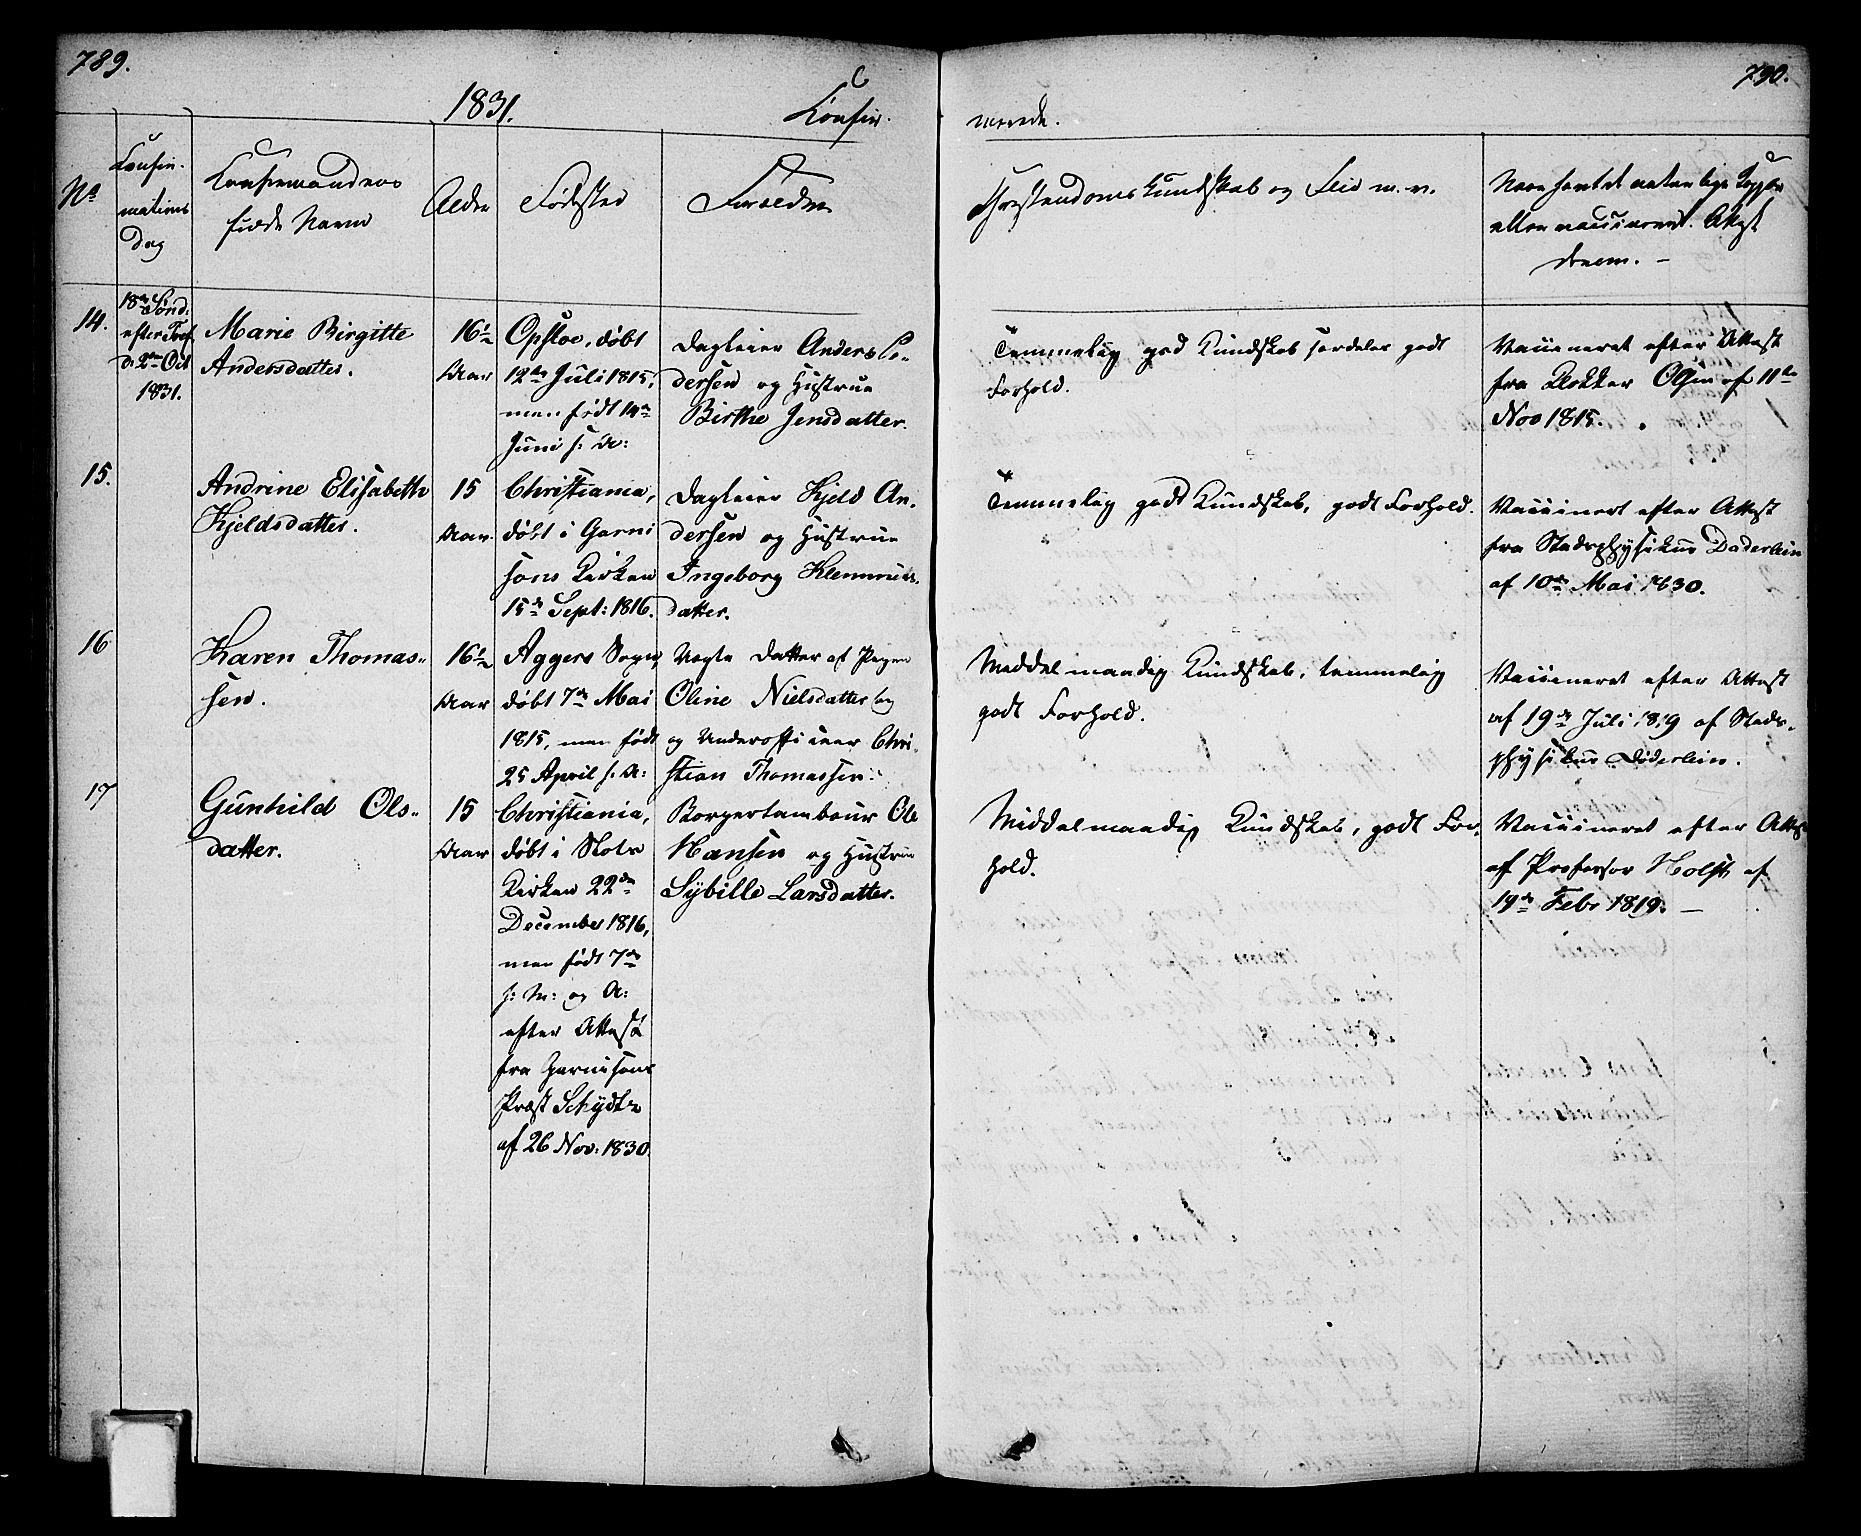 789.
790.
1831.
Confir-
merede.
No
Confir-
mations
Dag
Confirmandens
fulde Navn
Alder
Fødested
Forældre
Christendoms Kundskab og Flid m. v.
Naar havt de naturlige Kopper
eller vaccineret. Attest
derom. –
14.
18de Sønd:
efter Tref.
d: 2den Oct
1831.
Marie Birgitte
Andersdatter.
16½
Aar
Opsloe, døbt
12te Juli 1815,
men født 14de
Juni s: A:
Dagleier Anders Pe-
dersen og Hustrue
Birthe Jensdatter.
Temmelig god Kundskab særdeles godt
Forhold.
Vaccineret efter Attest
fra Klokker af 11te
Nov 1815.
15.
Andrine Elisabeth
Kjeldsdatter.
15
Aar
Christiania,
døbt i Garni
sons Kirken
15de Sept: 1816.
Dagleier Kjeld An-
dersen og Hustrue
Ingeborg
datter.
Temmelig godt Kundskab, godt Forhold.
Vaccinert efter Attest
fra Stadsphysikus Døderlein
af 10de Mai 1830.
16
Karen Thomas-
sen.
16½
Aar
Aggers Sogn,
døbt 7de Mai
1815, men født
25 April s: A:
Uægte Datter af Pigen
Oline Nielsdatter
og Underofficeer Chri-
stian Thomassen.
Middelmaadig Kundskab, temmelig
godt Forhold.
Vaccineret efter Attest
af 19de Juli 1819 af Stads-
physikus Døderlein.
17
Gunhild Ols-
datter.
15
Aar
Christiania,
døbt i Slots
Kirken 22de
December 1816,
men født 7de
s: M: og A:
efter Attest
fra Garnisons
Præst Schydtz
af 26 Nov: 1830.
Borgertambour Ole
Hansen og Hustrue
Sybille Larsdatter.
Middelmaadig Kundskab, godt For-
hold.
Vaccineret efter Attest
af Professor Holst af
19de Febr 1819. –